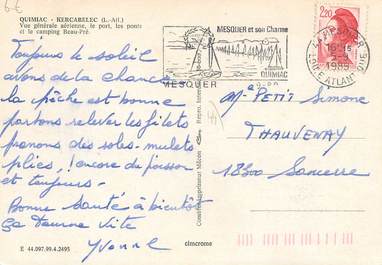 6€
QUIMIAC - KERCABELEC (L.-Atl.)
Vue générale aérienne, le port, les ponts
et le camping Beau-Pré.
Toujours le soleil
avons de la chance
la pêche est bonne
partons relever les filets
prenons des soles - mulets
plies ! encore du poisson
et toujours -
Bonne Santé à bientôt
Ça tourne vite
Yvonne
E 44.097.99.4.2495
cimcrome
MESQUER et son Charme
QUIMIAC
MESQUER
2,20
16H15
1989
LOIRE ATLANTIQUE
Mme PETIT Simone
THAUVENAY
18300 Sancerre